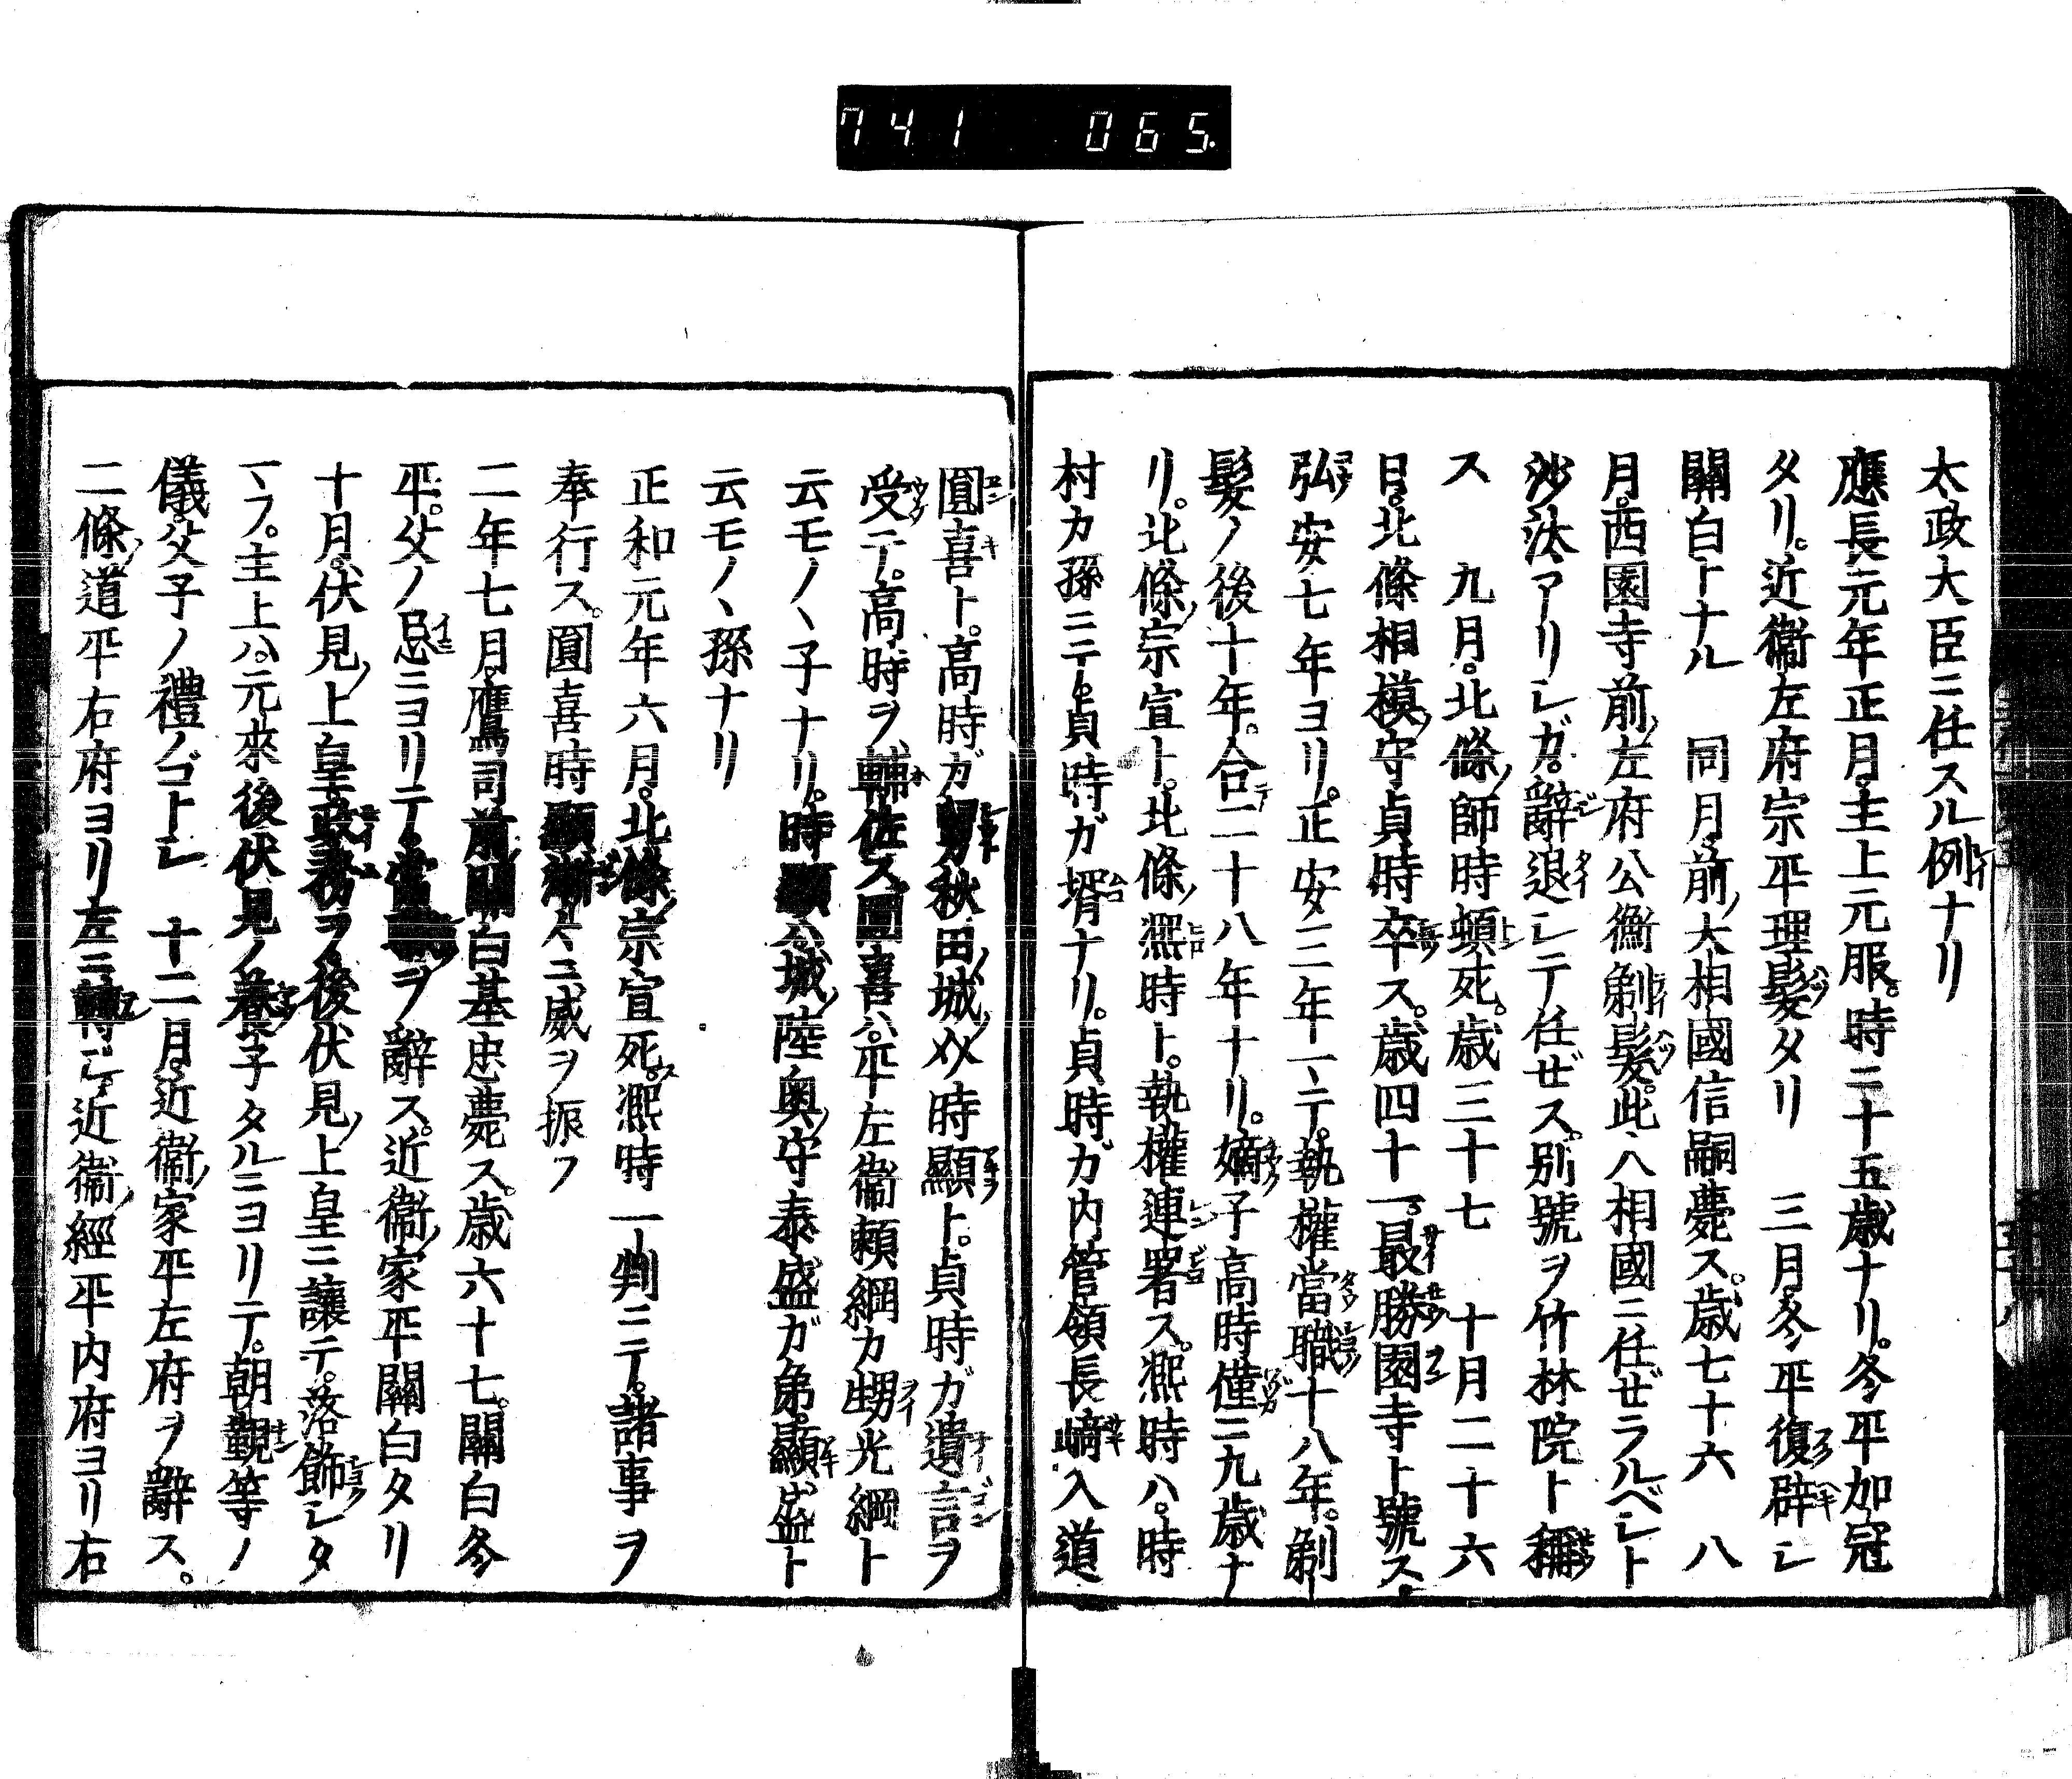 741 065
太政大臣ニ任スル例ナリ
應長元年正月。主上元服。時ニ十五歳ナリ。冬平加冠
タリ。近衞左府宗平理髮タリ 三月。冬平復辟シ
關白トナル 同月。前ノ大相國信嗣薨ス。歳七十六 八
月。西園寺前ノ左府公衡剃髮。此人相國ニ任ゼラルベシト
沙汰アリシガ。辭退シテ任ゼス。別號ヲ竹林院ト稱
ス 九月。北條ノ師時頓死。歳三十七 十月二十六
日。北條相模ノ守貞時卒ス。歳四十一。最勝園寺ト號ス。
弘安七年ヨリ。正安三年マテ。執權當職十八年。剃
髮ノ後十年。合テ二十八年ナリ。嫡子高時僅ニ九歳ナ
リ。北條ノ宗宣ト。北條ノ凞時ト。執權連署ス。凞時ハ。時
村カ孫ニテ。貞時ガ壻ナリ。貞時ガ内管領長崎入道
圓喜ト。高時ガ舅秋田ノ城ノ介時顯ト。貞時ガ遺言ヲ
受テ。高時ヲ輔佐ス。圓喜ハ。平左衞頼綱カ甥光綱ト
云モノヽ子ナリ。時顯ハ。城ノ陸奥ノ守泰盛ガ弟。顯盛ト
云モノヽ孫ナリ
正和元年六月。北條ノ宗宣死ス。凞時一判ニテ。諸事ヲ
奉行ス。圓喜時顯漸々ニ威ヲ振フ
二年七月。鷹司前ノ關白基忠薨ス。歳六十七。關白冬
平。父ノ忌ニヨリテ。當職ヲ辭ス。近衞ノ家平關白タリ
十月。伏見ノ上皇政務ヲ後伏見ノ上皇ニ讓テ。落飾シタ
マフ。主上ハ。元來後伏見ノ養子タルニヨリテ。朝覲等ノ
儀。父子ノ禮ノゴトシ 十二月。近衞ノ家平左府ヲ辭ス。
二條ノ道平右府ヨリ左ニ轉ジ。近衞ノ經平内府ヨリ右